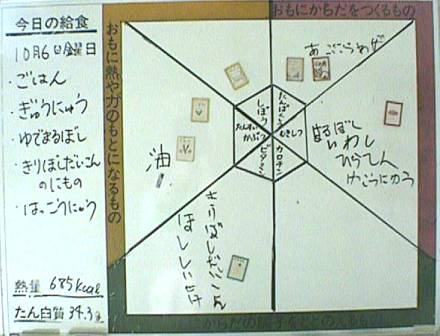 今日の給食
10月6日金曜日
・ごはん
・ぎゅうにゅう
・ゆでまるぼし
・きりぼしだいこん
のにもの
・はっこうにゅう
熱量 685kcal
たん白質 34.3g
おもに熱や力のもとになるもの
おもにからだをつくるもの
しぼう
たんぱくしつ
たんすい
かぶつ
むきしつ
ビタミン
カロチン
油
あぶらあげ
まるぼし
いわし
ひらてん
はっこうにゅう
きりぼしだいこん
ほししいたけ